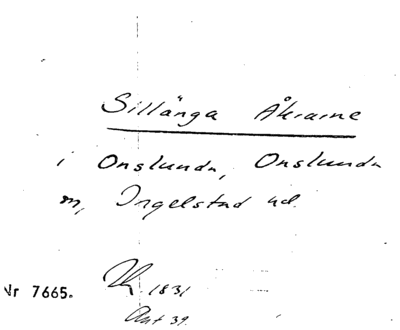 Sillånga Åkrarne
i Onslunda, Onslunda
m, Ingelstad hd.
1831
Nr 7665. Akt 39.